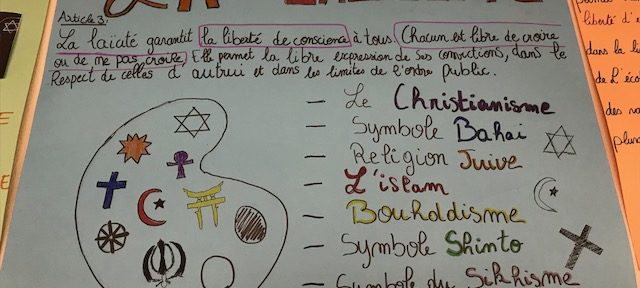 Article 3:
La laïcité garantit la liberté de conscience à tous. Chacun et libre de croire
ou de me pas croire. Elle permet la libre expression de ses convictions, dans le
Respect de celles d'autrui et dans les limites de l'ordre public.
— Le Christianisme
— Symbole Bahai
— Religion Juive
— L'islam
— Bouhddisme
— Symbole Shinto
— Symbole du Sikhisme
liberté d'
dans la li
de L'éco
des no
plur
E